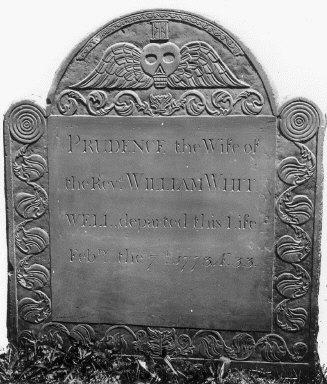 PRUDENCE the Wife of
the Revd. WILLIAM WHIT
WELL, departed this Life
Febry. the 7th. 1773. Æ. 33.